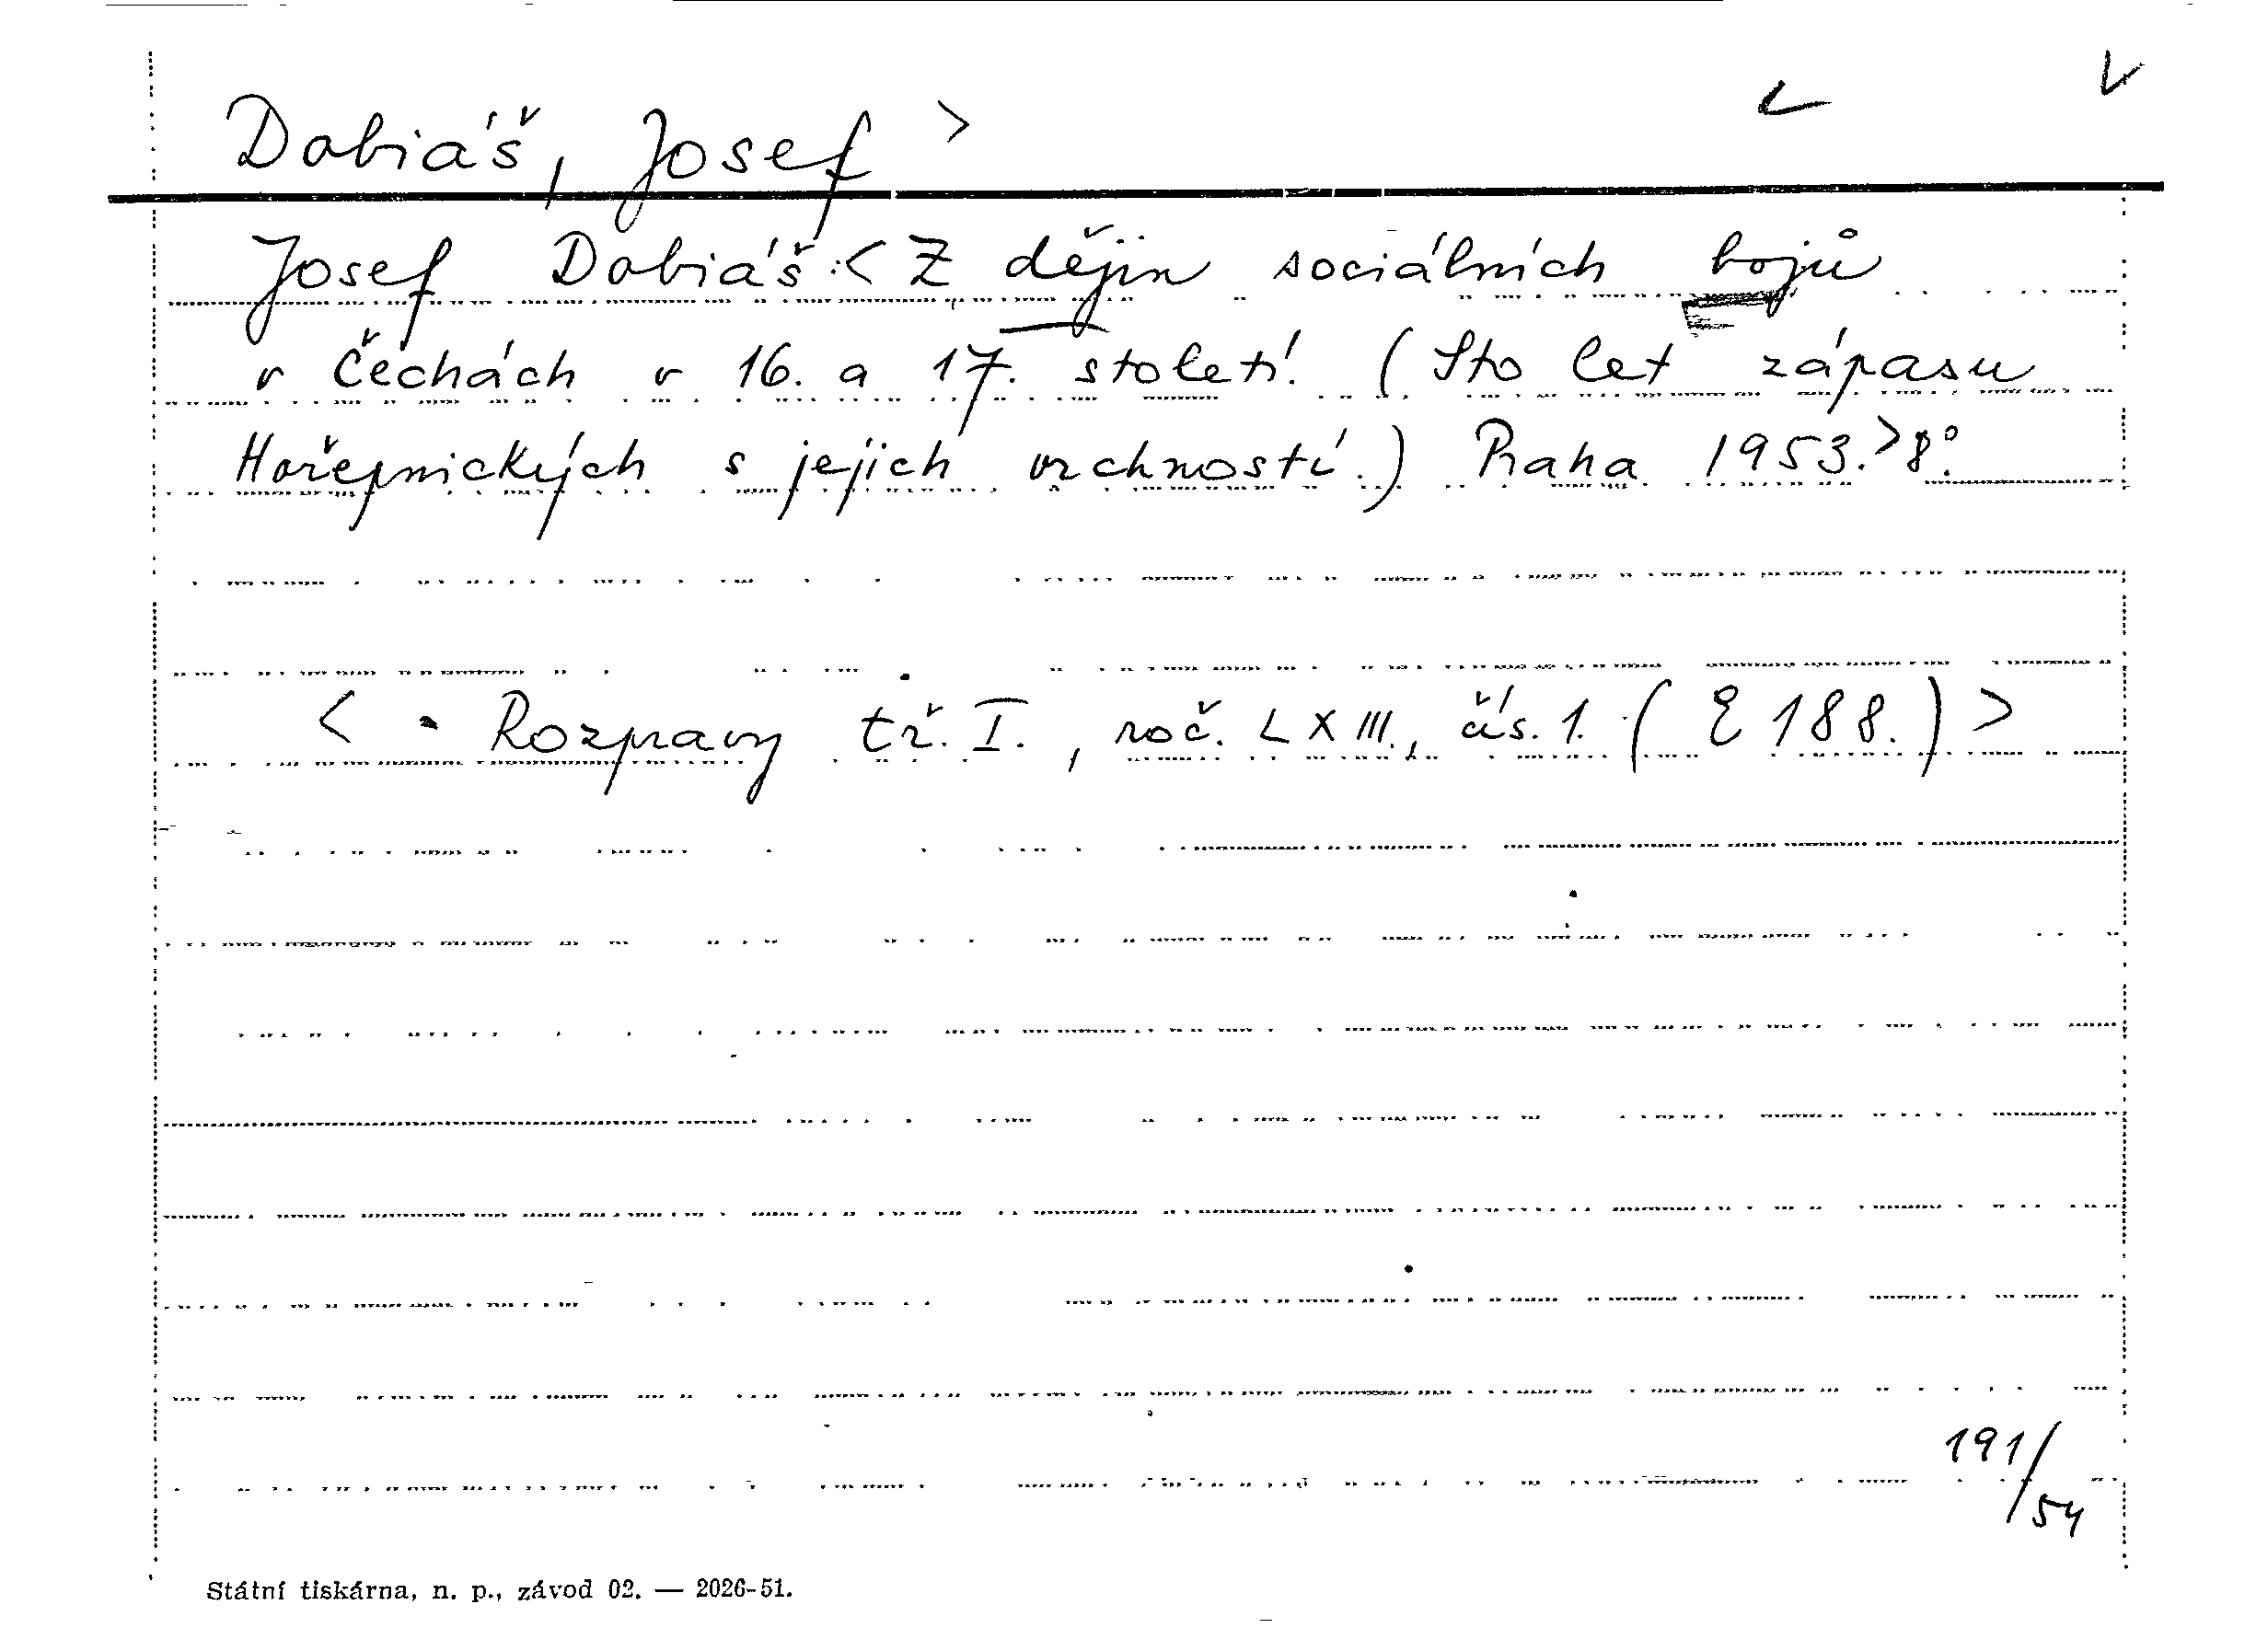 Dobiáš, Josef >
Josef Dobiáš :< Z dějin sociálních bojů
v Čechách v 16. a 17. století. (Sto let zápasu
Hořepnických s jejich vrchností.) Praha 1953.> 8°.
< • Rozpravy tř. I., roč. LXIII., čís. 1. (E 188.) >
191/54
Státní tiskárna, n. p., závod 02. — 2026-51.